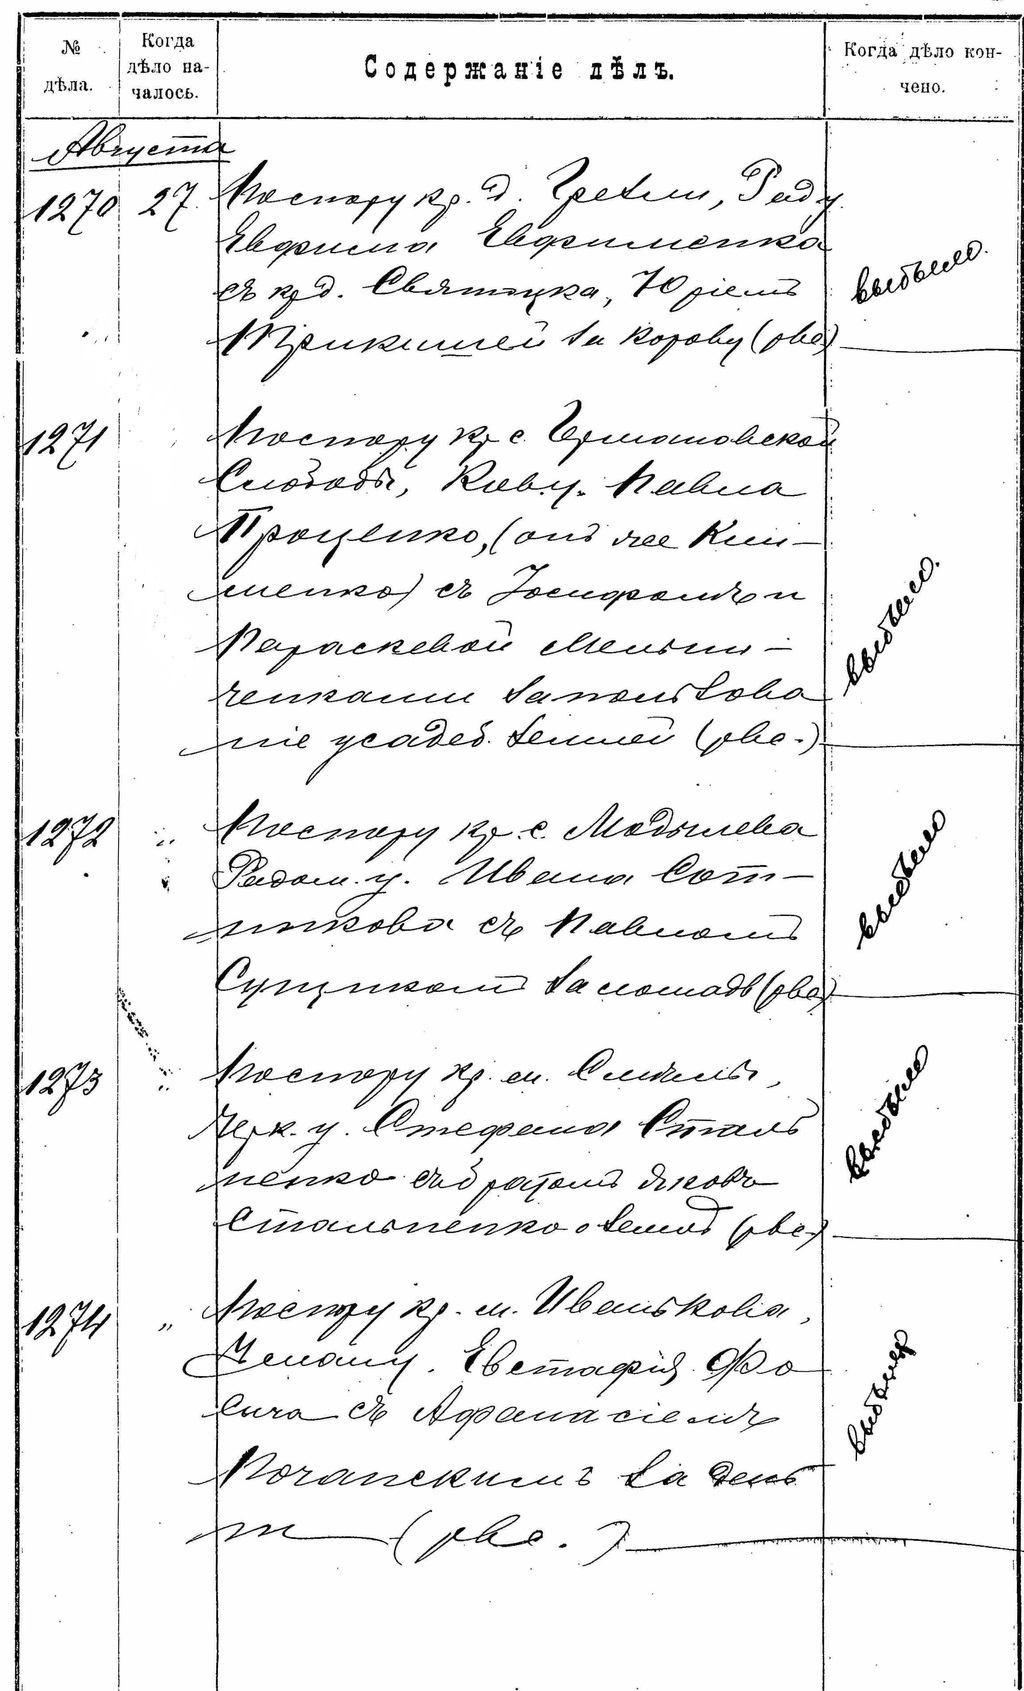 № дѣла.
Когда дѣло началось.
Содержаніе дѣлъ.
Когда дѣло кончено.
Августа
1270 27. По спору кр. д. Гребли, Рад. у.
Евфима Евфименка
съ кр. д. Святицка, Юріемъ
за корову (рве) выбыло.
1271 По спору кр. с. Германовской
Слободы, Кiев. у. Павла
Проценко, (онъ же Кли-
менко) съ Іосифомъ и
Параскевой Мельни-
ченками за пользова
ніе усадеб. землей (рве.) выбыло.
1272 " По спору кр. с. Модылева
Радом. у. Ивана Сот-
никова съ Павломъ
Сущикомъ за лошадь (рве) выбыло
1273 " По спору кр. м. Смѣлы,
Черк. у. Стефана Сталь
ненко съ братомъ Яковъ
Стальненко о землѣ (рве.) выбыло
1274 " По спору кр. м. Иванькова,
у. Евстафія Фо
сича съ Афанасіемъ
Почапскимъ за день
ги (рве.)